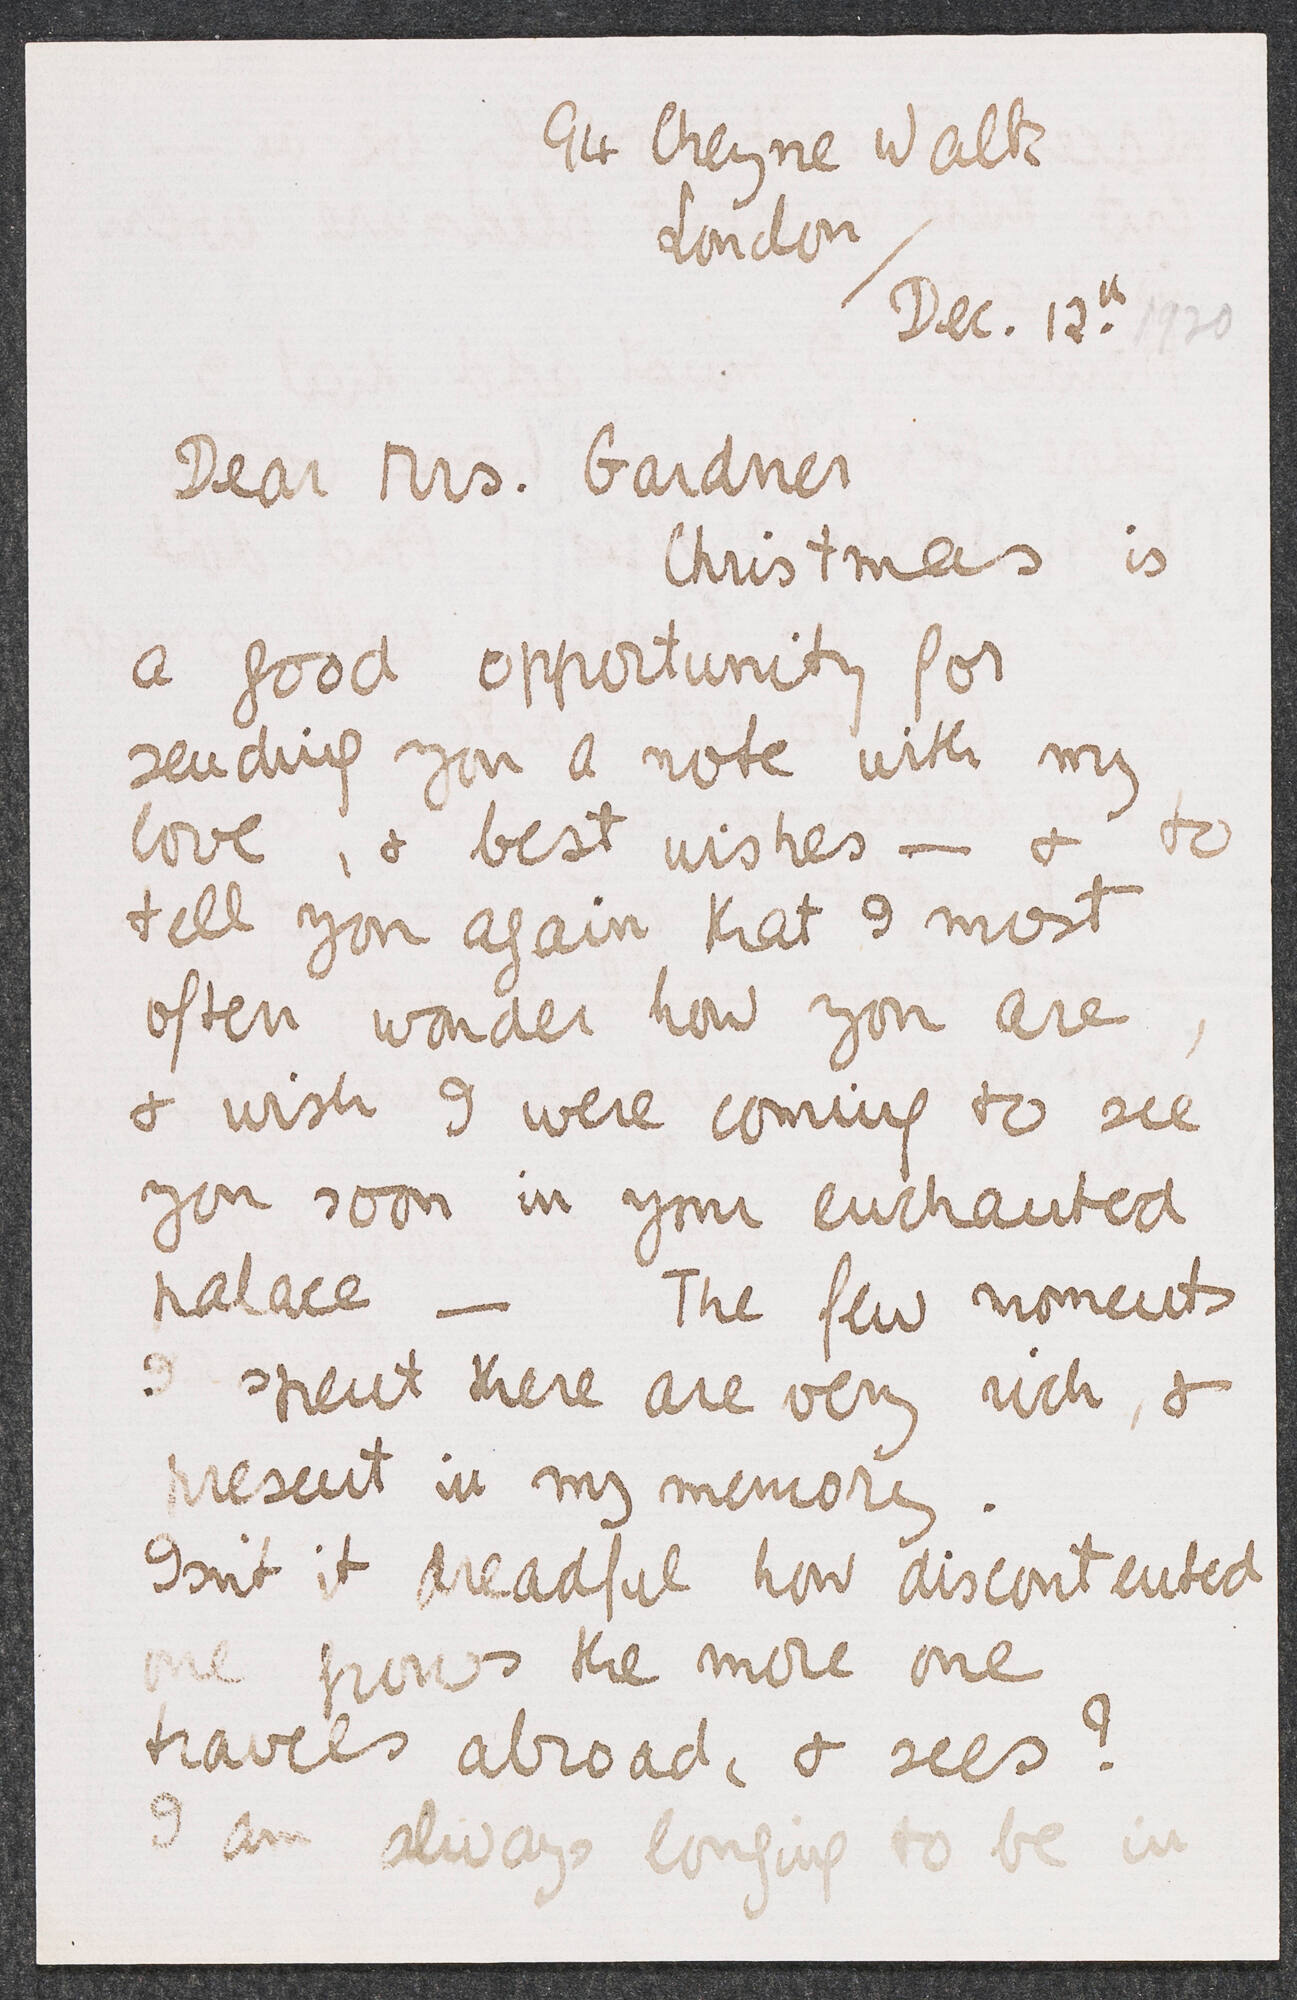 94 Cheyne Walk
London /
Dec. 12th. 1920
Dear Mrs. Gardner
Christmas is
a good opportunity for
sending you a note with my
love, & best wishes — & to
tell you again that I most
often wonder how you are,
& wish I were coming to see
you soon in your enchanted
palace — The few moments
I spent there are very rich, &
present in my memory.
Isn't it dreadful how discontented
one grows the more one
travels abroad, & sees?
I am always longing to be in